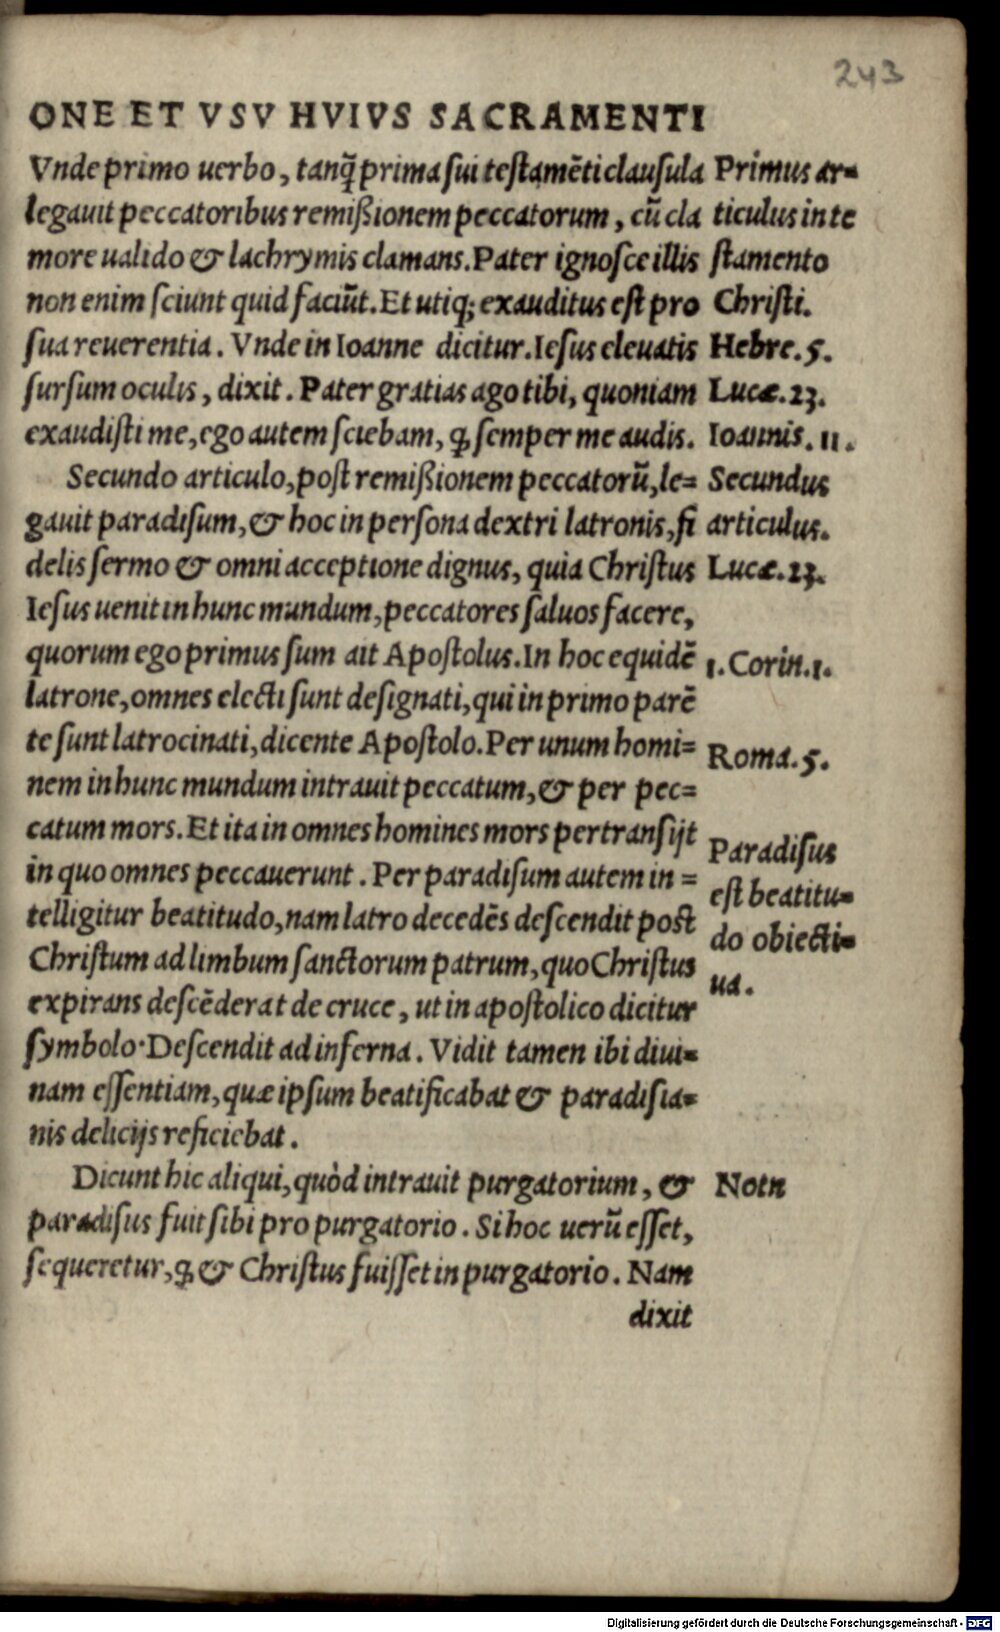 243
ONE ET VSV HVIVS SACRAMENTI
Vnde primo uerbo, tanq̃ prima sui testamẽti clausula
legauit peccatoribus remißionem peccatorum, cũ cla
more ualido & lachrymis clamans. Pater ignosce illis
non enim sciunt quid faciũt. Et utiq; exauditus est pro
sua reuerentia. Vnde in Ioanne dicitur. Iesus eleuatis
sursum oculis, dixit. Pater gratias ago tibi, quoniam
exaudisti me, ego autem sciebam, ꝙ semper me audis.
Secundo articulo, post remißionem peccatorũ, le=
gauit paradisum, & hoc in persona dextri latronis, fi
delis sermo & omni acceptione dignus, quia Christus
Iesus uenit in hunc mundum, peccatores saluos facere,
quorum ego primus sum ait Apostolus. In hoc equidẽ
latrone, omnes electi sunt designati, qui in primo parẽ
te sunt latrocinati, dicente Apostolo. Per unum homi=
nem in hunc mundum intrauit peccatum, & per pec=
catum mors. Et ita in omnes homines mors pertransijt
in quo omnes peccauerunt. Per paradisum autem in=
telligitur beatitudo, nam latro decedẽs descendit post
Christum ad limbum sanctorum patrum, quo Christus
expirans descẽderat de cruce, ut in apostolico dicitur
symbolo· Descendit ad inferna. Vidit tamen ibi diui=
nam essentiam, quæ ipsum beatificabat & paradisia=
nis delicijs reficiebat.
Dicunt hic aliqui, quòd intrauit purgatorium, &
paradisus fuit sibi pro purgatorio. Si hoc uerũ esset,
sequeretur, ꝙ & Christus fuisset in purgatorio. Nam
dixit
Primus ar=
ticulus in te
stamento
Christi.
Hebre. 5.
Lucæ. 23.
Ioannis. 11.
Secundus
articulus.
Lucæ. 23.
1. Corin. 1.
Roma. 5.
Paradisus
est beatitu=
do obiecti=
ua.
Nota
Digitalisierung gefördert durch die Deutsche Forschungsgemeinschaft - DFG